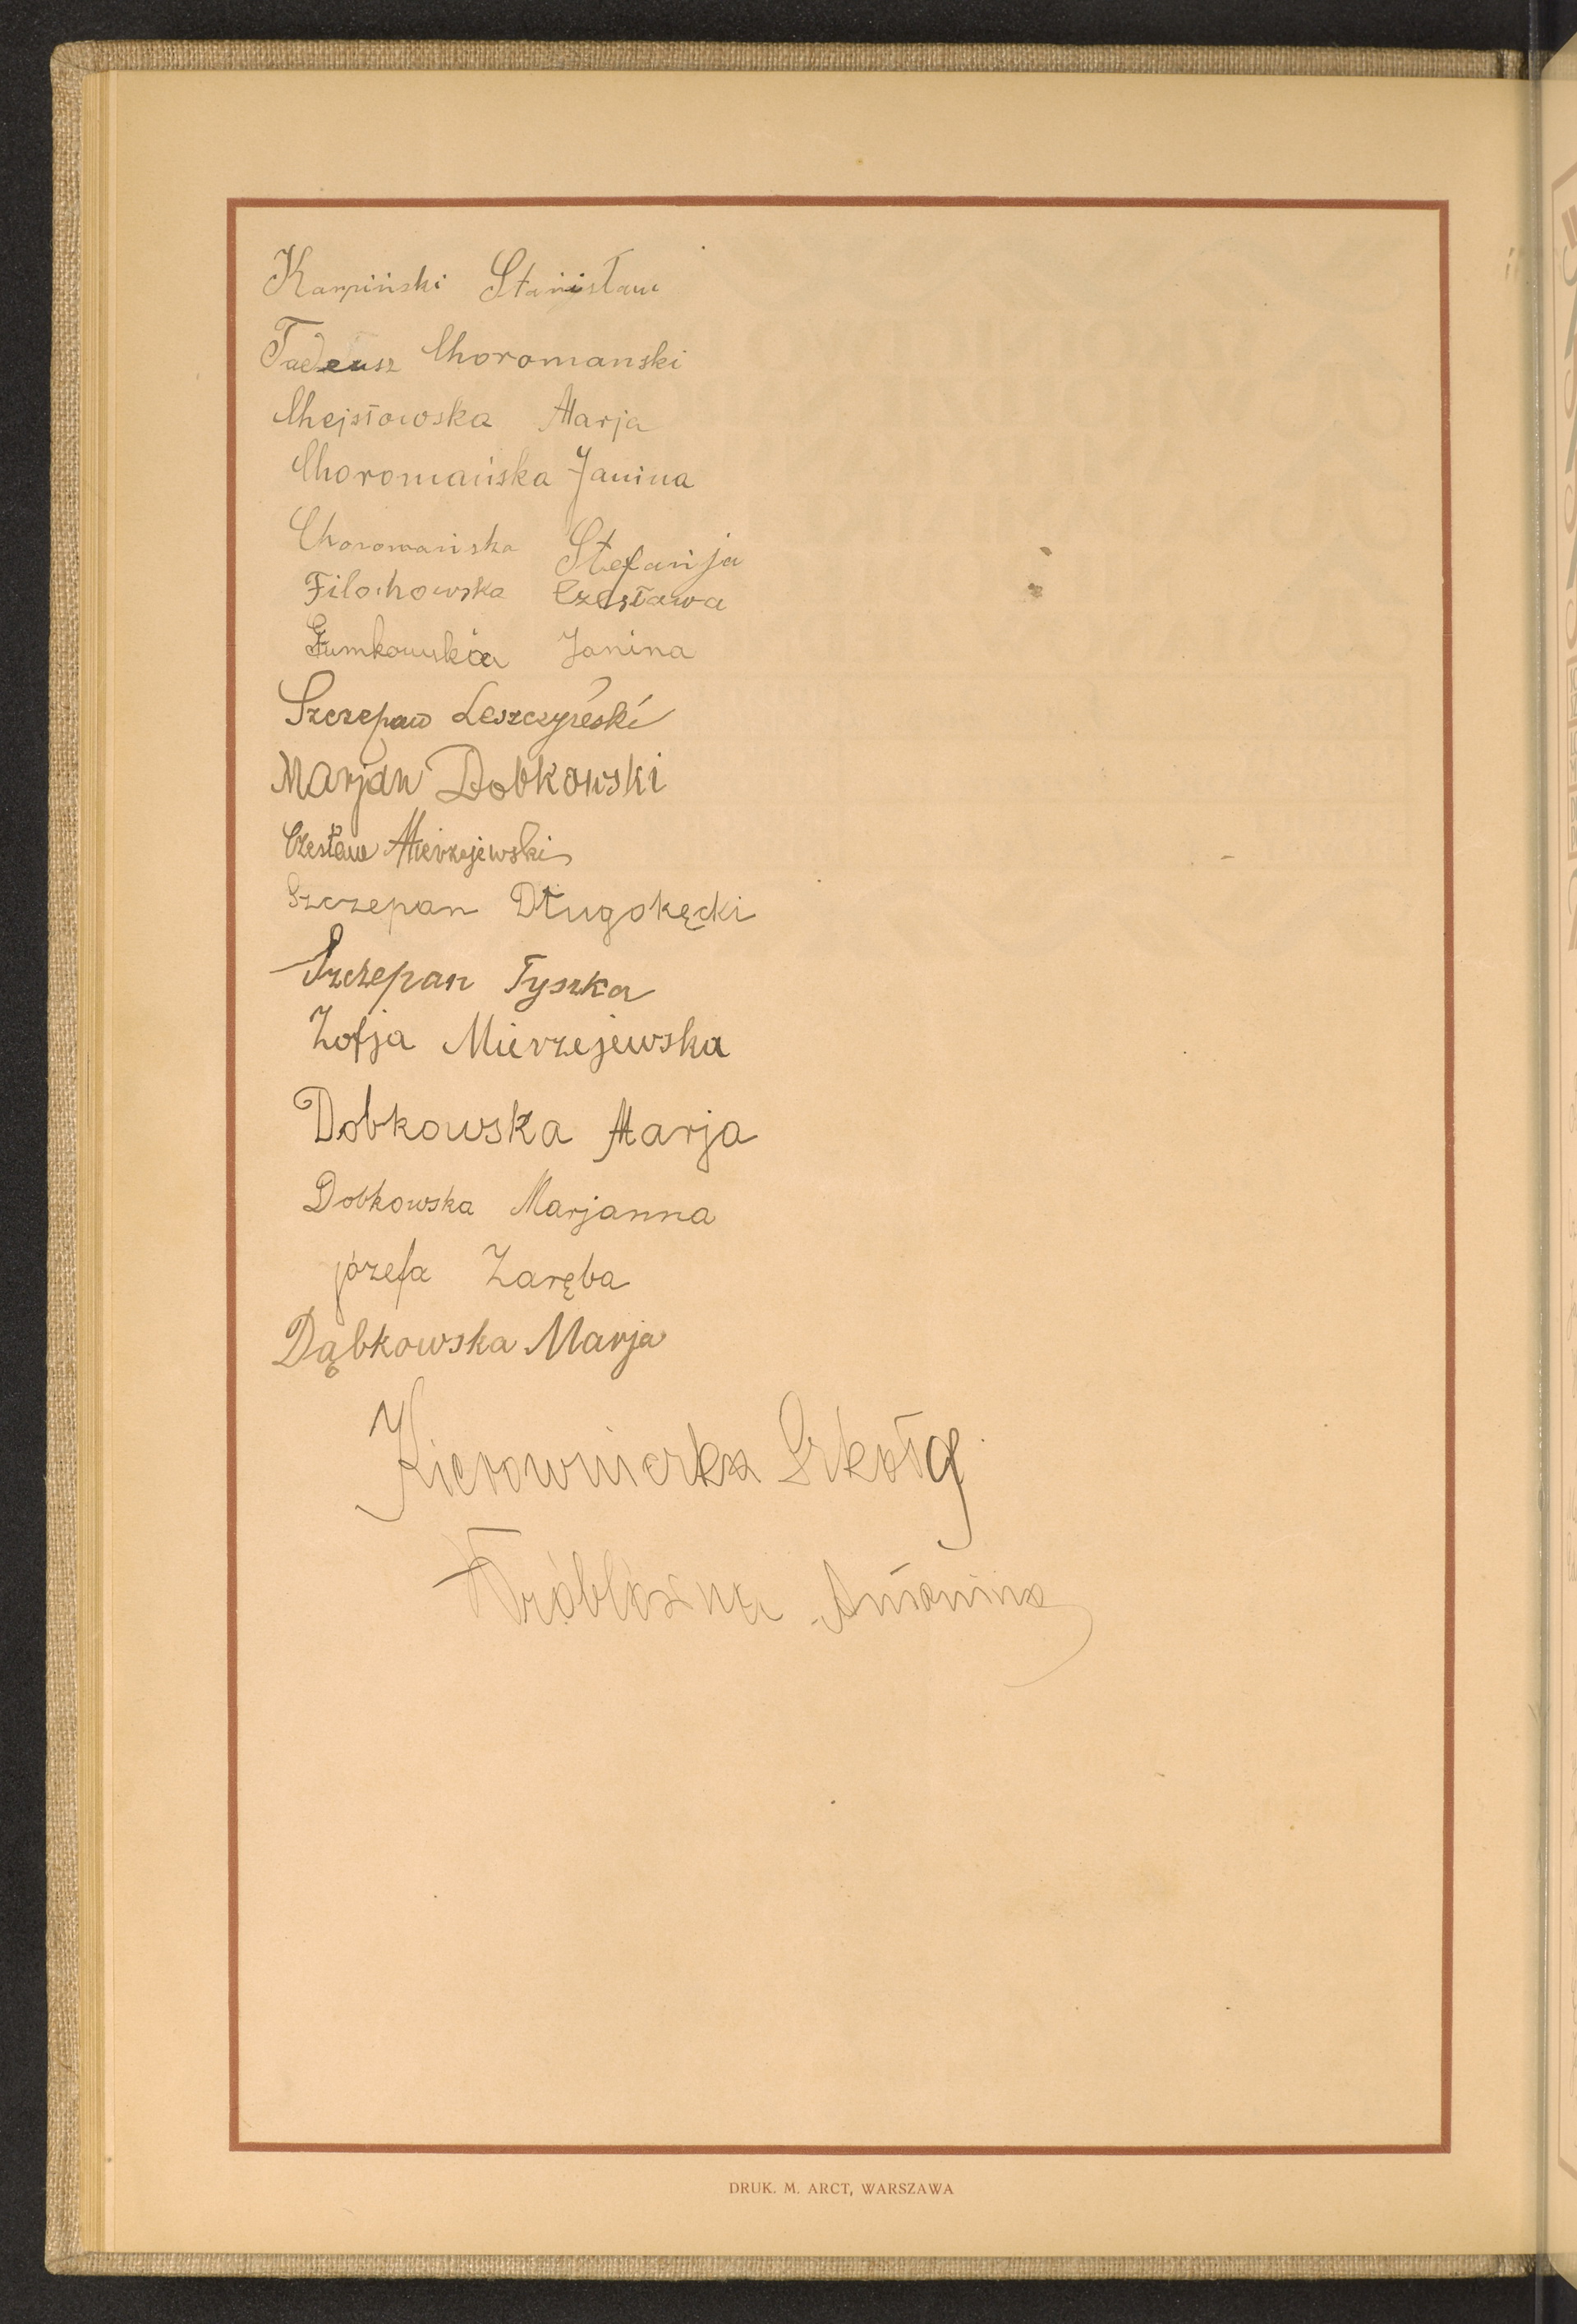 Karpiński Stanisław
Tadeusz Choromanski
Chejstowska Marja
Choromańska Janina
Choromańska Stefanija
Filochowska Czesława
Janina
Szczepan Leszczyński
Marjan Dobkowski
Czesław Mierzejewski
Szczepan Długokęcki
Szczepan Tyszka
Zofja Mierzejewska
Dobkowska Marja
Dobkowska Marjanna
józefa Zaręba
Dąbkowska Marja
Kierowniczka Szkoły
Antonina
DRUK. M. ARCT, WARSZAWA